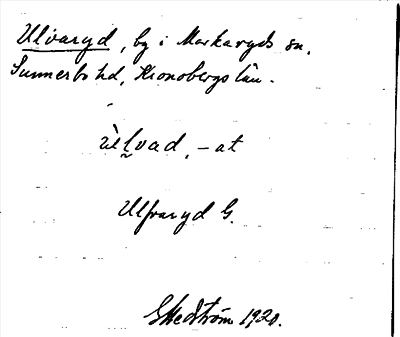 Ulvaryd, by i Markaryds sn,
Sunnerbo hd, Kronobergs län.
ùlvad, -at
Ulfvaryd G.
G Hedström 1920.